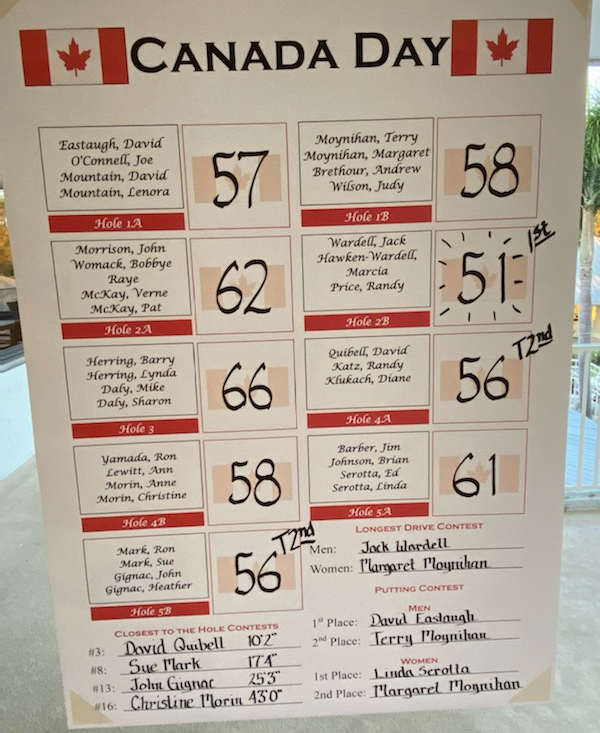 CANADA DAY
Eastaugh, David
O'Connell, Joe
Mountain, David
Mountain, Lenora
57
Hole 1A
Moynihan, Terry
Moynihan, Margaret
Brethour, Andrew
Wilson, Judy
58
Hole 1B
Morrison, John
Womack, Bobbye
Raye
McKay, Verne
McKay, Pat
62
Hole 2A
Wardell, Jack
Hawken-Wardell,
Marcia
Price, Randy
51
1st
Hole 2B
Herring, Barry
Herring, Lynda
Daly, Mike
Daly, Sharon
66
Hole 3
Quibell, David
Katz, Randy
Klukach, Diane
56
T2nd
Hole 4A
Yamada, Ron
Lewitt, Ann
Morin, Anne
Morin, Christine
58
Hole 4B
Barber, Jim
Johnson, Brian
Serotta, Ed
Serotta, Linda
61
Hole 5A
Mark, Ron
Mark, Sue
Gignac, John
Gignac, Heather
56
T2nd
Hole 5B
LONGEST DRIVE CONTEST
Men: Jack Wardell
Women: Margaret Moynihan
PUTTING CONTEST
MEN
1st Place: David Eastaugh
2nd Place: Terry Moynihan
WOMEN
1st Place: Linda Serotta
2nd Place: Margaret Moynihan
CLOSEST TO THE HOLE CONTESTS
#3: David Quibell 10'2"
#8: Sue Mark 17'4"
#13: John Gignac 25'3"
#16: Christine Morin 43'0"